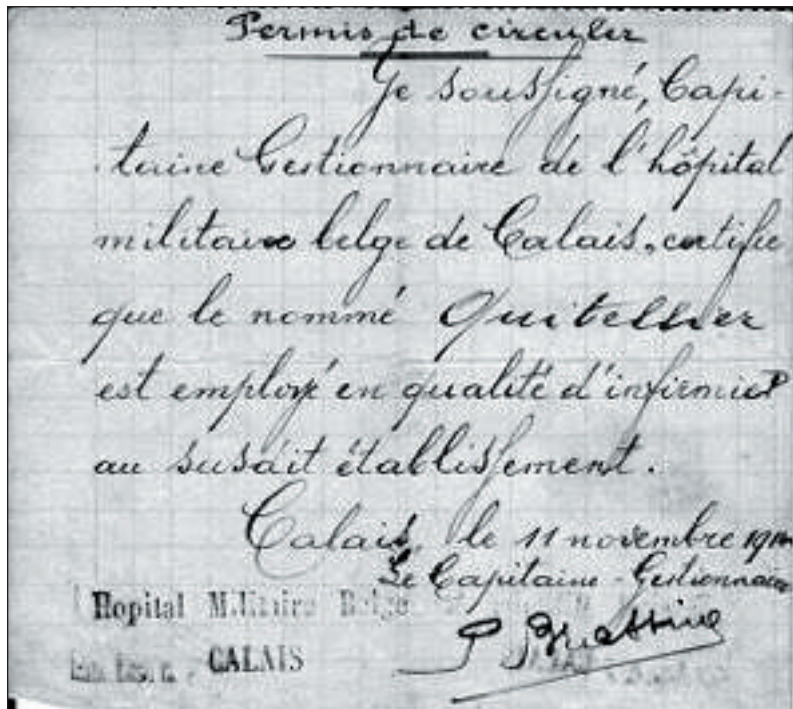 Permis de circuler
Je soussigné, Capi-
taine Gestionnaire de l'hôpital
militaire belge de Calais, certifie
que le nommé Quitellier
est employé en qualité d'infirmier
au susdit établissement.
Calais, le 11 novembre
Le Capitaine-Gestionnaire
Hopital Militaire Belge
CALAIS